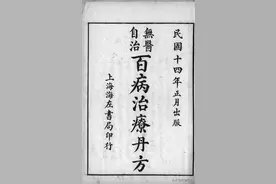 民國十四年正月出版
無醫自治
百病治療丹方
上海海左書局印行